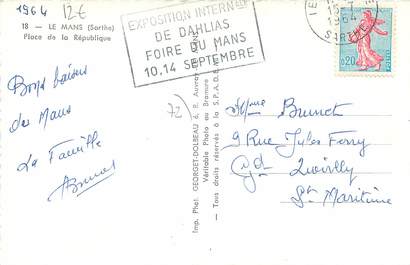 1964 12€
18 - LE MANS (Sarthe)
Place de la République
EXPOSITION INTERNle
DE DAHLIAS
FOIRE DU MANS
10.14 SEPTEMBRE
1964
SARTHE
0,20
Bons baisers
du Mans
La Famille
Imp. Phot. GEORGET-DOLBEAU 6, R. Auvray
Véritable Photo au Bromure
Tous droits réservés à la S.P.A.D.E.
Mme Brunet
9 Rue Jules Ferry
Gd Quevilly
Ste Maritime